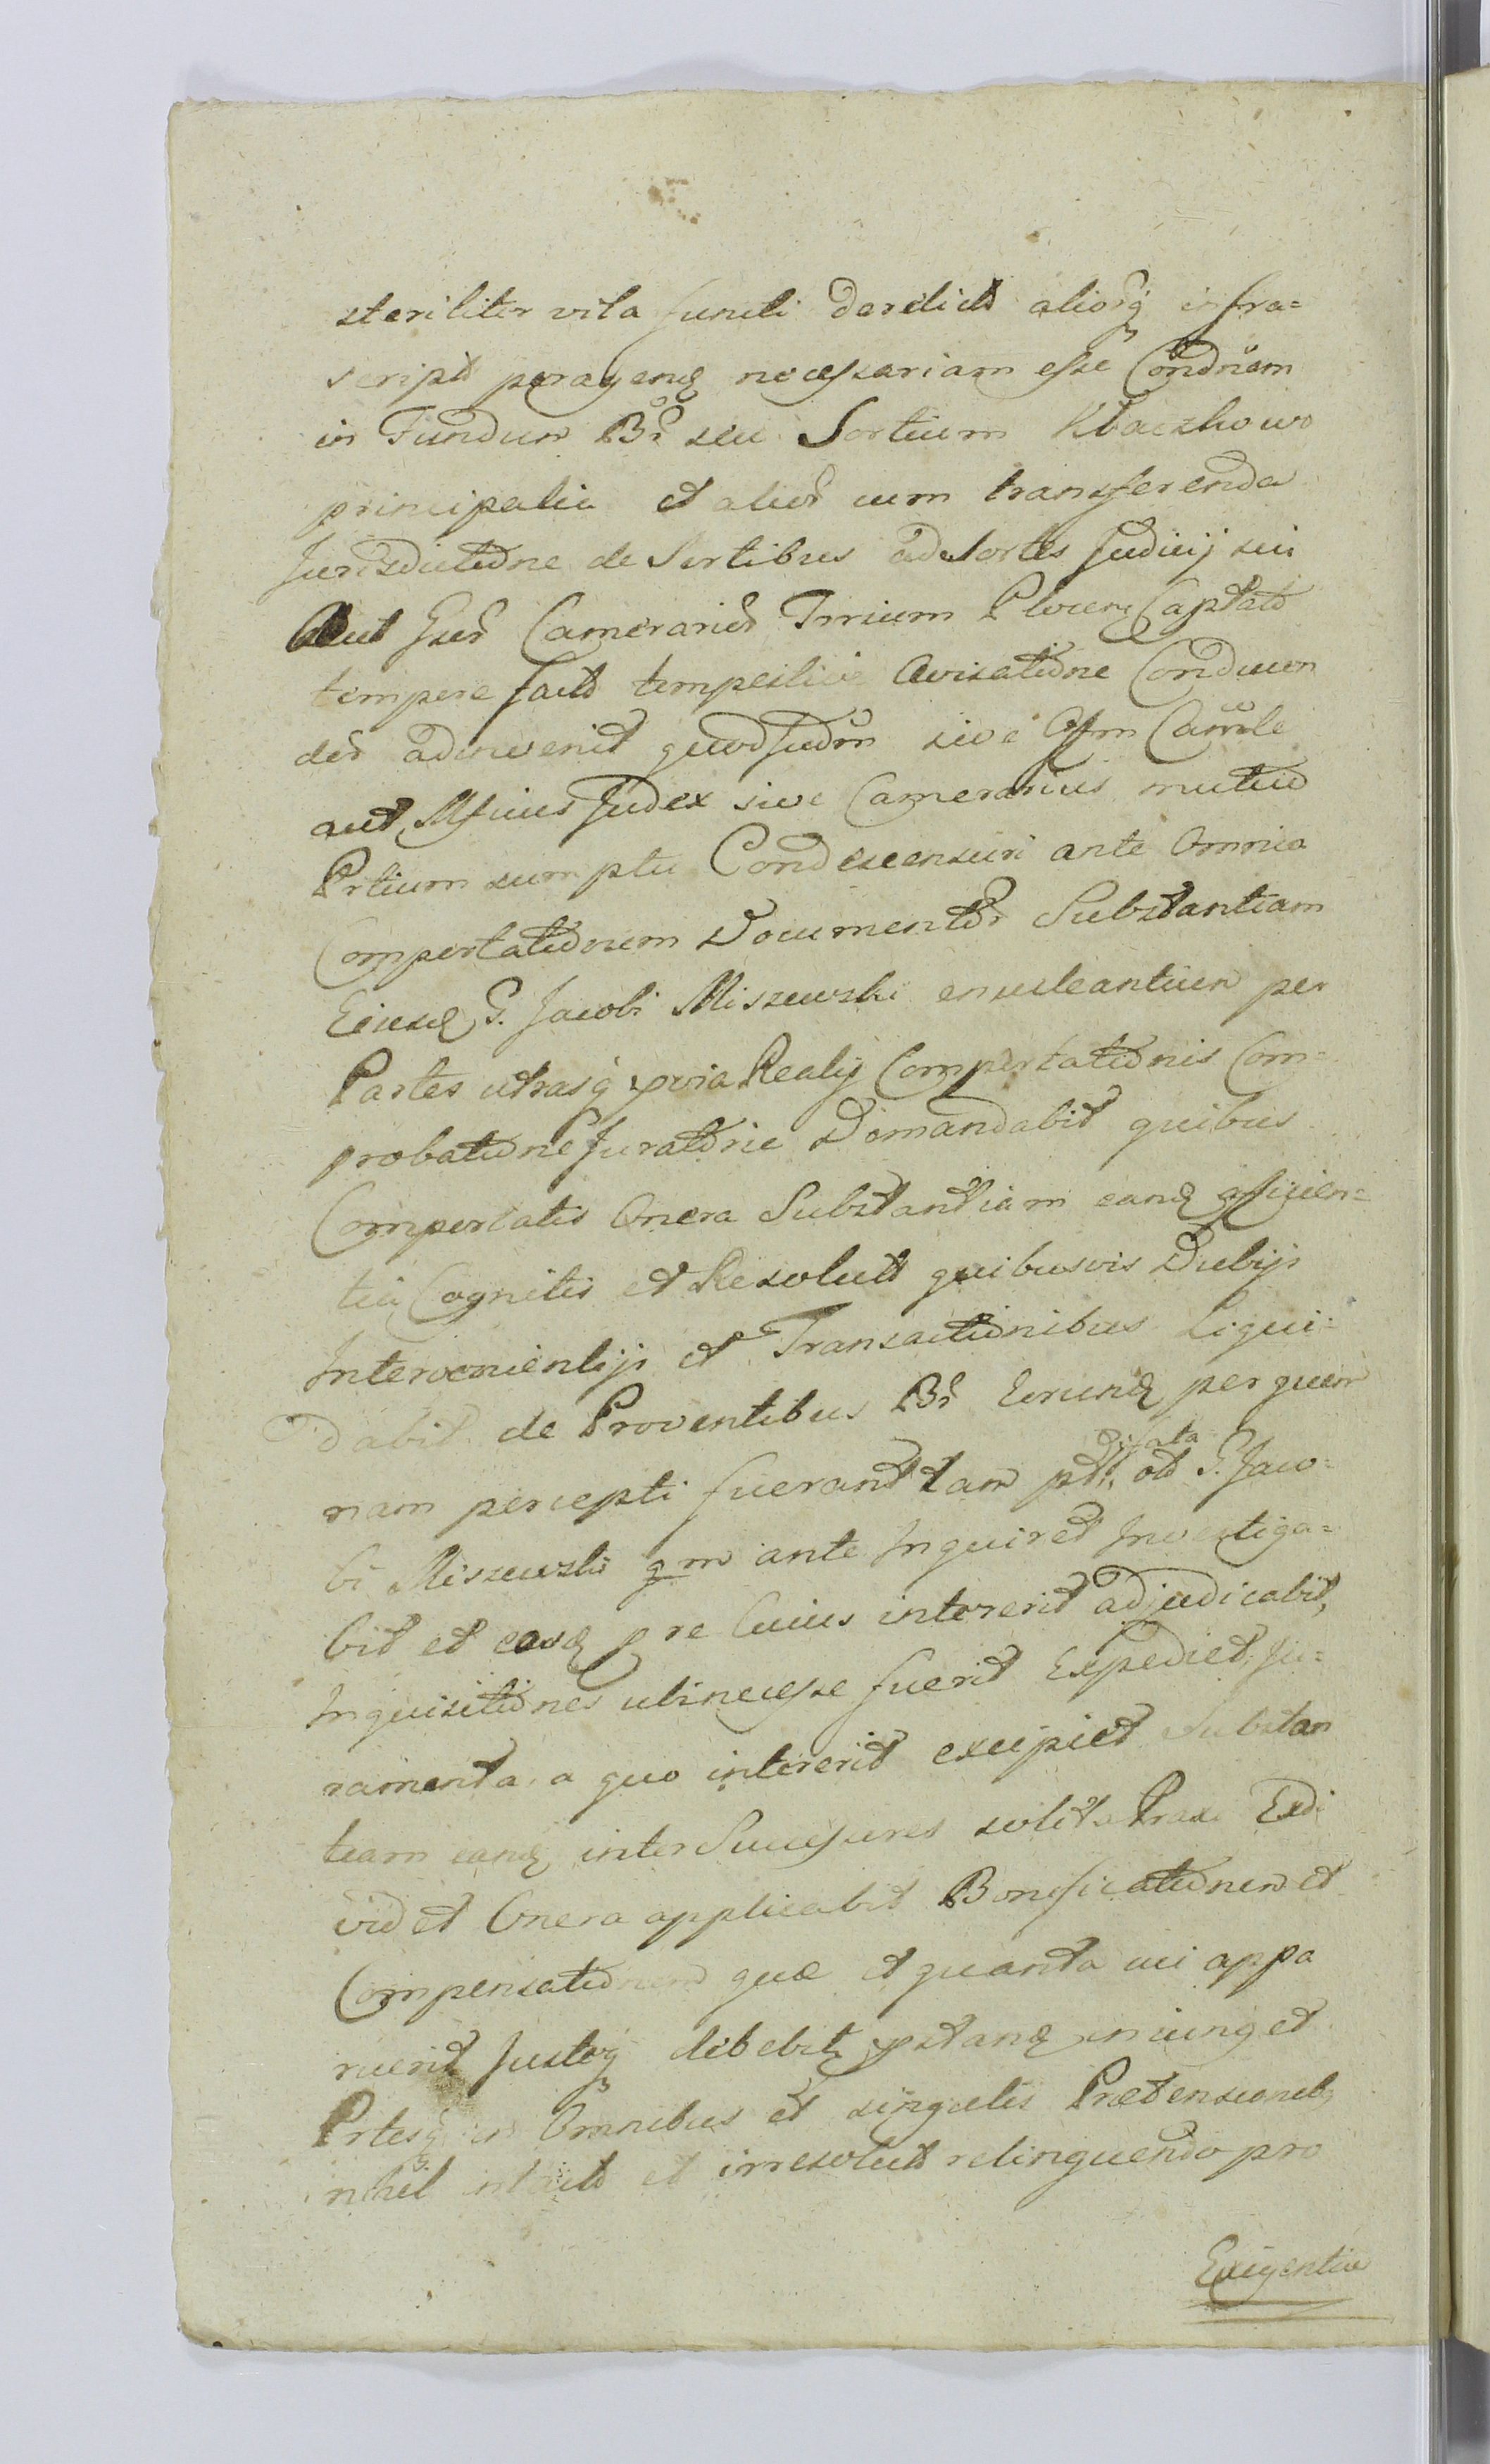 steriliter vita functi derelict aliorq infra=
script peragend necessariam esse Condnem
in Fundum Br seu Sortium Kbaczkowo
principaliu et alior cum transferenda
Jurisdictione de Sortibus ad Sortes Judicij sui
Aut Camerarior Trrium Plocen Captato
tempore facto tempestive Avisatione Conducen
der adinvenit quod Judm sive Offm Camrle
aut Offcius Judex sive Camerarius mutuo
Prtium sumptu Condescensuri ante Omnia
Comportationem Documentor Substantiam
Eiusd G. Jacobi Miszewski enucleantium per
Partes utrasq pvia Realis Comportationis Com=
probatione Juratorie Demandabit quibus
Comportatis Onera Substantiam eand afficien=
tia Cognitis et Resolut quibusvis Dubijs
Intervenientijs et Transactionibus Liqui=
dabit de Proventibus Br Eorund per quem
nam percepti fuerant tam pt ob G. Jaco=
bi Miszewski qm ante Inquiret Investiga=
bit et eosd p re Cuius intererit adjudicabit,
Inquisitiones ubi necesse fuerit Expediet, Ju=
ramenta a quo intererit excipiet Substan
tiam eand inter Successores solita Praxi Exdi
videt Onera applicabit Bonificationem et
Compensationem quae et quanta cui appa
ruerit Justeq debebit pstand iniunget
Prtesq in Omnibus et singulis Praetensionib
nihil intact et irresolut relinquendo pro
Exigentia